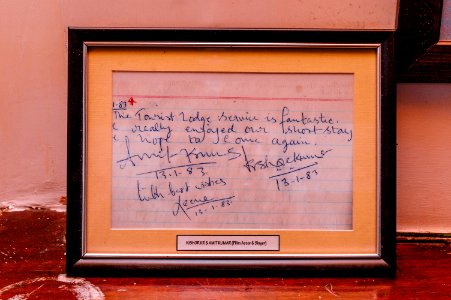 1-83
The Tourist Lodge service is fantastic.
really enjoyed our short stay
hope to come again.
Amit Kumar Kishore Kumar
13.1.83 13-1-83
With best wishes
Leena
13-1-83
KISHORE & AMIT KUMAR (Film Actor & Singer)